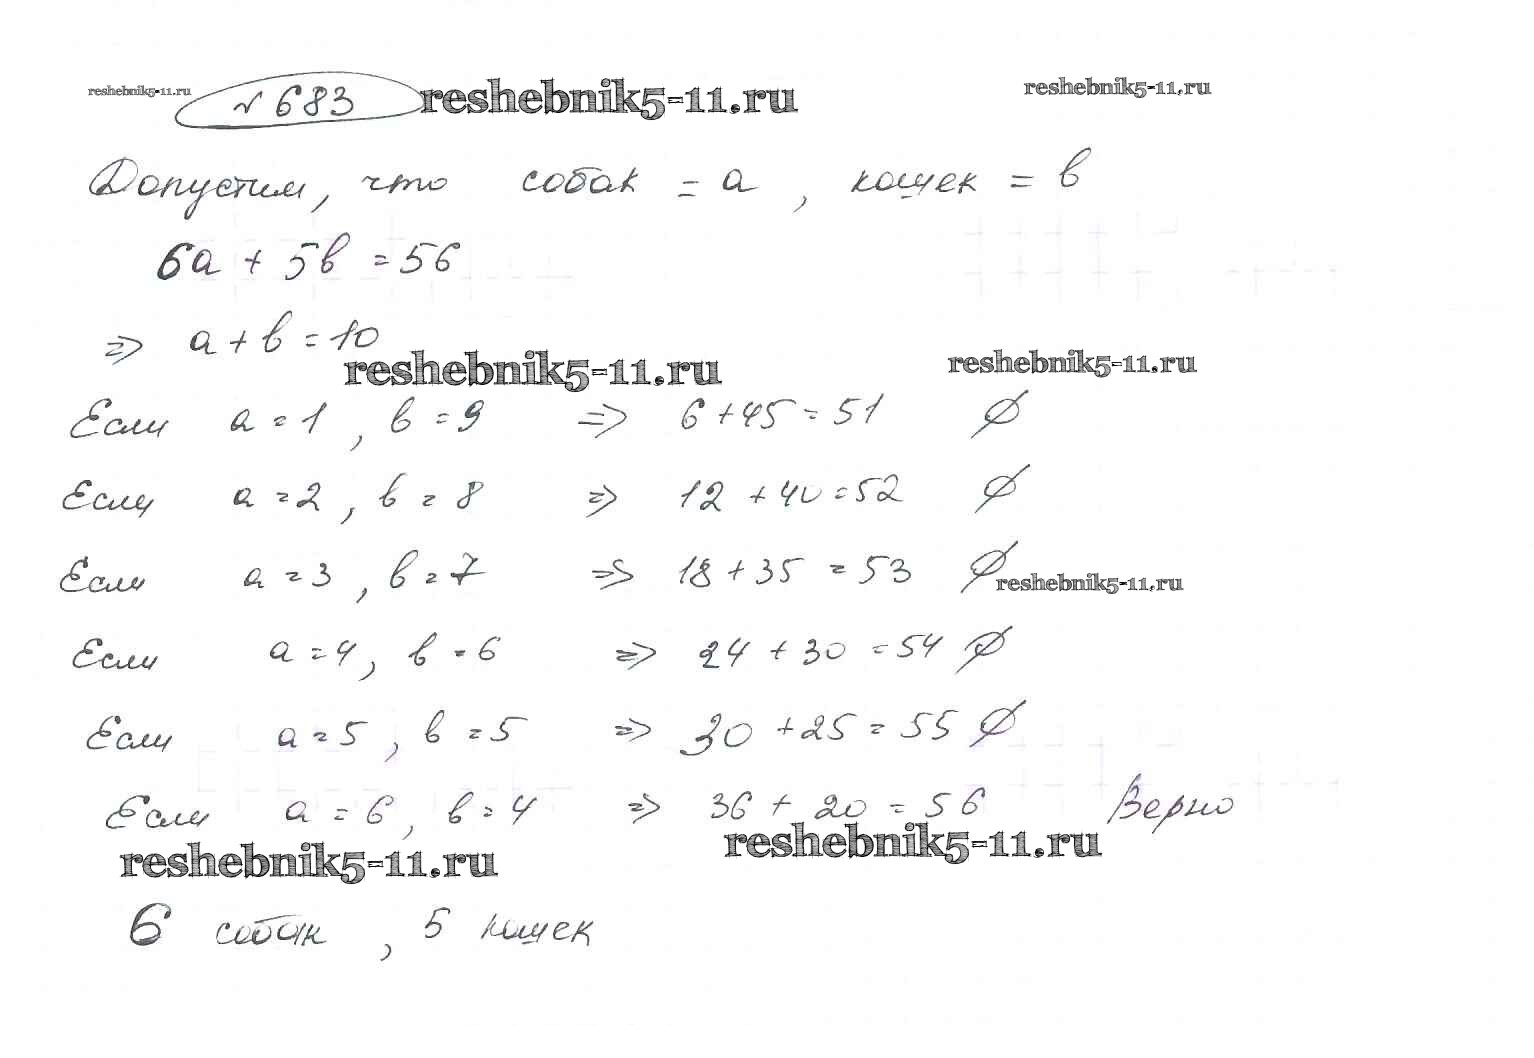 reshebnik5-11.ru №683 reshebnik5-11.ru reshebnik5-11.ru
Допустим, что собак = a, кошек = b
6a + 5b = 56
=> a + b = 10
reshebnik5-11.ru reshebnik5-11.ru
Если a = 1, b = 9 => 6 + 45 = 51 ∅
Если a = 2, b = 8 => 12 + 40 = 52 ∅
Если a = 3, b = 7 => 18 + 35 = 53 ∅ reshebnik5-11.ru
Если a = 4, b = 6 => 24 + 30 = 54 ∅
Если a = 5, b = 5 => 30 + 25 = 55 ∅
Если a = 6, b = 4 => 36 + 20 = 56 Верно
reshebnik5-11.ru reshebnik5-11.ru
6 собак, 5 кошек